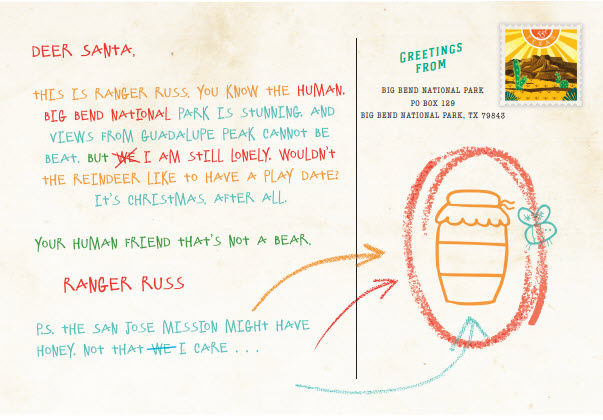 DEER SANTA,
THIS IS RANGER RUSS. YOU KNOW THE HUMAN.
BIG BEND NATIONAL PARK IS STUNNING. AND
VIEWS FROM GUADALUPE PEAK CANNOT BE
BEAT. BUT WE I AM STILL LONELY. WOULDN'T
THE REINDEER LIKE TO HAVE A PLAY DATE?
IT'S CHRISTMAS, AFTER ALL.
YOUR HUMAN FRIEND THAT'S NOT A BEAR,
RANGER RUSS
P.S. THE SAN JOSE MISSION MIGHT HAVE
HONEY. NOT THAT WE I CARE . . .
GREETINGS
FROM
BIG BEND NATIONAL PARK
PO BOX 129
BIG BEND NATIONAL PARK, TX 79843